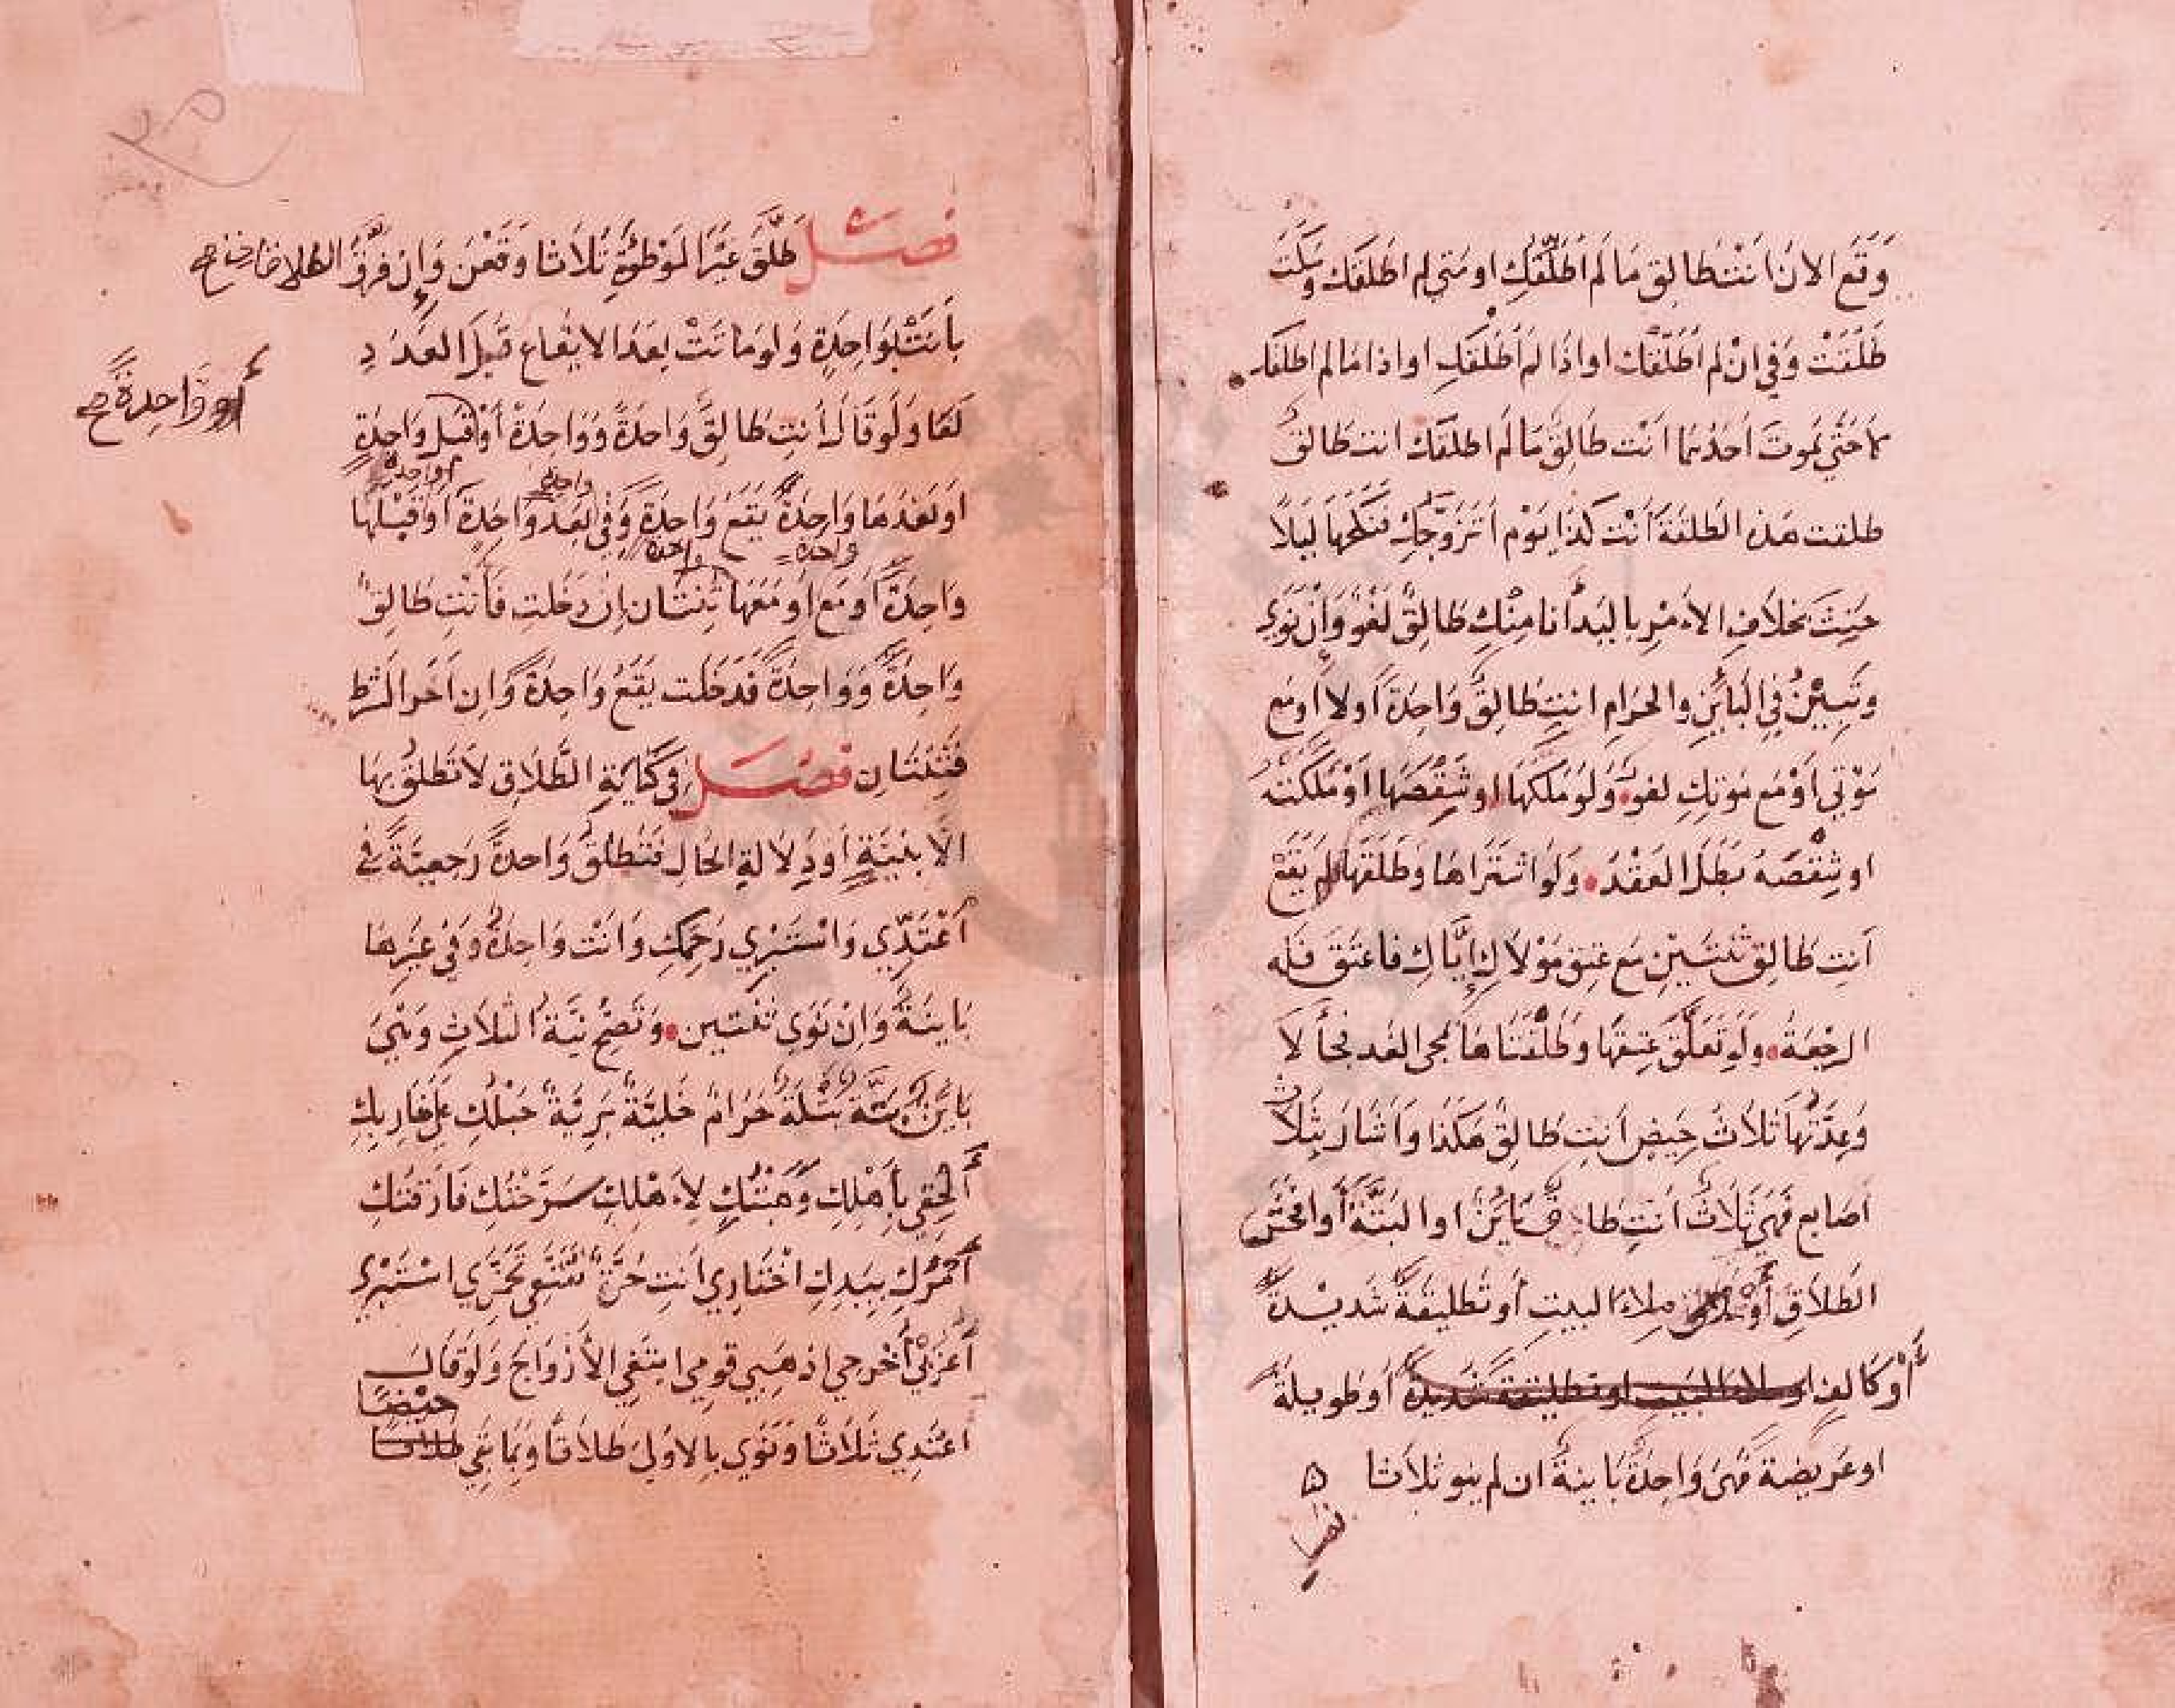 وَقَعَ الان اَنْتِ طالِق مَا لَم اُطَلِّقْكِ او مَتي لم اطلقك وسَكَتَ
طَلُقَتْ وَفِي اِنْ لم اُطَلِّقْك او اذَا لَم اُطَلِّقكِ او اذا مَا لم اطلقك
لا حَتّي يَموتَ اَحَدُهُمَا اَنْت طَالِقٌ مَا لَم اطلقك انت طَالقٌ
طلقت هَذه الطَّلْقَةَ اَنْت كذَا يَوْم اَتَزَوَّجُكِ فَنَكَحَهَا لَيْلًا
حَنِثَ بخلَافِ الاَمْرِ باليَدِ اَنَا مِنْكِ طَالِقٌ لَغْوٌ وَاِنْ نَوَي
وَتَبِيْنُ فِي البَائِنِ والحَرَامِ انتِ طَالِقٌ وَاحِدَةً اَولا او مَع
مَوْتي اَوْ مَع مَوتِكِ لغو وَلَو مَلَكَهَا او شِقْصَهَا اَوْ مَلَكَتْهُ
او شِقْصَهُ بَطَلَ العَقْدُ وَلَو اشْتَرَاهَا وَطَلَّقَهَا لم يَقَعْ
اَنتِ طَالِق ثنتَيْنِ مَع عِتْقِ مَوْلَاكِ اِيَّاكِ فَاَعْتَقَ فَله
الرجْعَةُ وَلَو تَعَلَّقَ عِتقُهَا وَطَلْقَتَاهَا بمجي الغَد فجَأ لَا
وَعِدَّتُهَا ثَلَاثُ حِيَضٍ اَنتِ طَالِقٌ هَكَذَا وَاَشَارَ بِثَلَاث
اَصَابع فَهِيَ ثَلَاثٌ اَنْتِ طَالِقٌ بَائِنٌ او البَتَّةَ اَو افحَشَ
الطَّلَاقِ أَوْ مِلاءَ البيتِ أَو تَطلِيقَةً شَدِيْدةً
أَوْ كَالفٍ او طَوِيلَةً
او عَرِيضَة فَهِيَ وَاحِدَةٌ بَاينَةٌ ان لم ينو ثلاثا
فَصْل طَلَّقَ غَيْرَ المَوْطوءَةِ ثَلَاثا وَقَعْنَ وَإِن فَرَّقَ الطَّلاق
بَانَتْ بِوَاحِدَةٍ وَلو مَاتَتْ بَعْدَ الايْقَاعِ قَبْلَ العَدَدِ
أَو وَاحِدةً صح
لَغَا وَلَو قَالَ أَنتِ طَالِقٌ وَاحدَةً وَوَاحِدَةً أَوْ قَبْل وَاحِدَةٍ
اَو بَعْدَهَا وَاحِدَةٌ يَقَعُ وَاحِدَةٌ وَفِي بَعْدَ وَاحِدَةٍ اَوْ قَبْلَهَا
وَاحِدَةٌ اَو مَع اَو مَعَهَا ثِنْتَان اِنْ دَخَلتِ فَأَنْتِ طَالِقٌ
وَاحِدَةً وَوَاحِدَةً فَدَخَلت يَقَعُ وَاحِدَةٌ وَاِن اَخَّر الشرْط
فَثِنْتَانِ فَصْل فِي كِنَايَةِ الطَّلَاقِ لَا تَطْلقُ بهَا
اِلَّا بِنِيَّةٍ او دِلَالَةِ الحَالِ فَتَطْلُقُ وَاحدةً رَجعِيَّةً في
اَعْتَدِّي وَاسْتَبْرِي رَحِمَكِ وَانْت وَاحِدَةٌ وَفي غَيْرِهَا
بَاينَةٌ وَاِنْ نَوَي ثنتين وَتَصِحُّ نيَّةُ الثَّلَاثِ وَهْيَ
بَايِن بَتَّةٌ بَتْلَةٌ حَرَامٌ خَلِيَّةٌ بَرِيَّةٌ حَبْلُكِ عَلَى غَارِبِكِ
أَلْحِقي بأَهْلِكِ وَهَبْتُكِ لِاَهْلِكِ سَرَّحْتُكِ فَارَقتُكِ
أَمْرُكِ بِيَدِكِ اخْتَارِي اَنتِ حُرَّةٌ تَقَنَّعِي تَخَمَّرِي اسْتَتِرِي
أَغْرُبِي أُخْرجي اذهَبِي قومي ابتَغِي الأَزْوَاجَ وَلَو قَالَ
حَيْضًا
اعْتَدِي ثَلَاثًا وَنَوَي بالاولي طَلَاقًا وَبمَا بَقِي